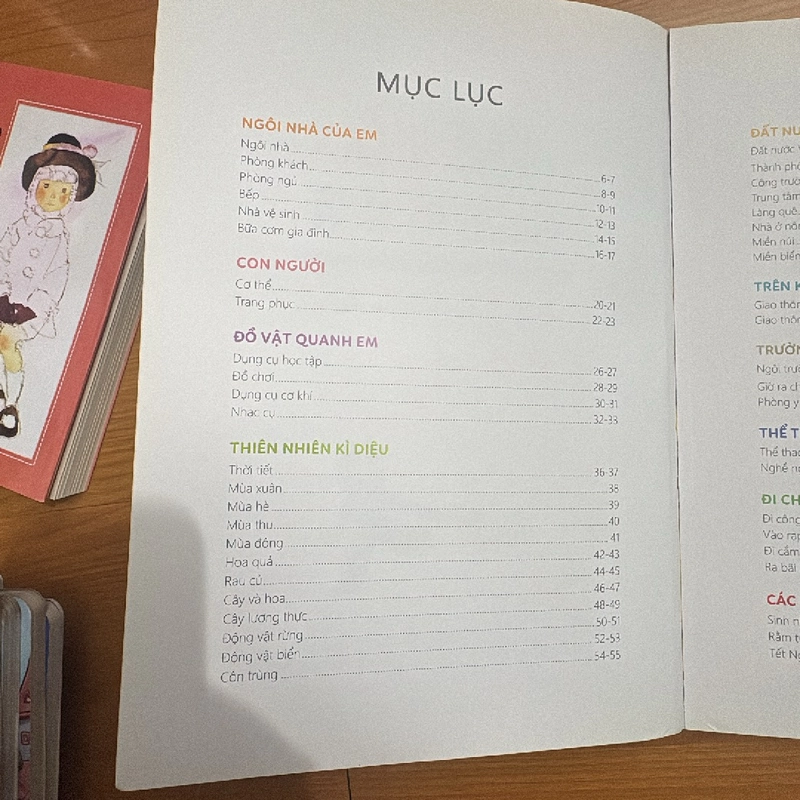 MỤC LỤC
NGÔI NHÀ CỦA EM
Ngôi nhà 6-7
Phòng khách 8-9
Phòng ngủ 10-11
Bếp 12-13
Nhà vệ sinh 14-15
Bữa cơm gia đình 16-17
CON NGƯỜI
Cơ thể 20-21
Trang phục 22-23
ĐỒ VẬT QUANH EM
Dụng cụ học tập 26-27
Đồ chơi 28-29
Dụng cụ cơ khí 30-31
Nhạc cụ 32-33
THIÊN NHIÊN KÌ DIỆU
Thời tiết 36-37
Mùa xuân 38
Mùa hè 39
Mùa thu 40
Mùa đông 41
Hoa quả 42-43
Rau củ 44-45
Cây và hoa 46-47
Cây lương thực 48-49
Động vật rừng 50-51
Động vật biển 52-53
Côn trùng 54-55
ĐẤT
Đất nước
Thành
Công
Trung
Làng quê
Nhà ở
Miền núi
Miền
TRÊN
Giao
Giao
Ngôi
Giờ ra
Phòng
THỂ
Thể
Nghề
ĐI
Đi
Vào
Đi
Ra
CÁC
Sinh
Rằm
Tết